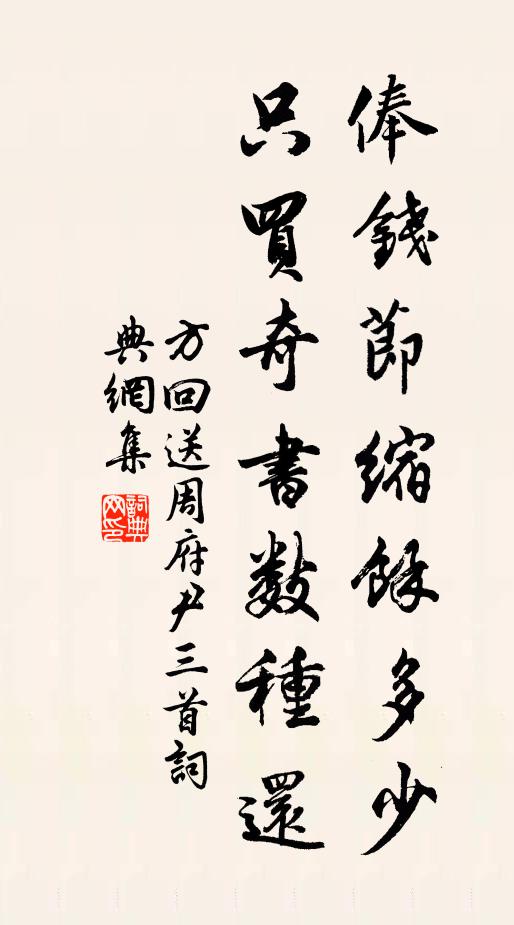 俸錢節縮餘多少
只買奇書数種還
方回送周府尹三首詞
典網集
詞典網印